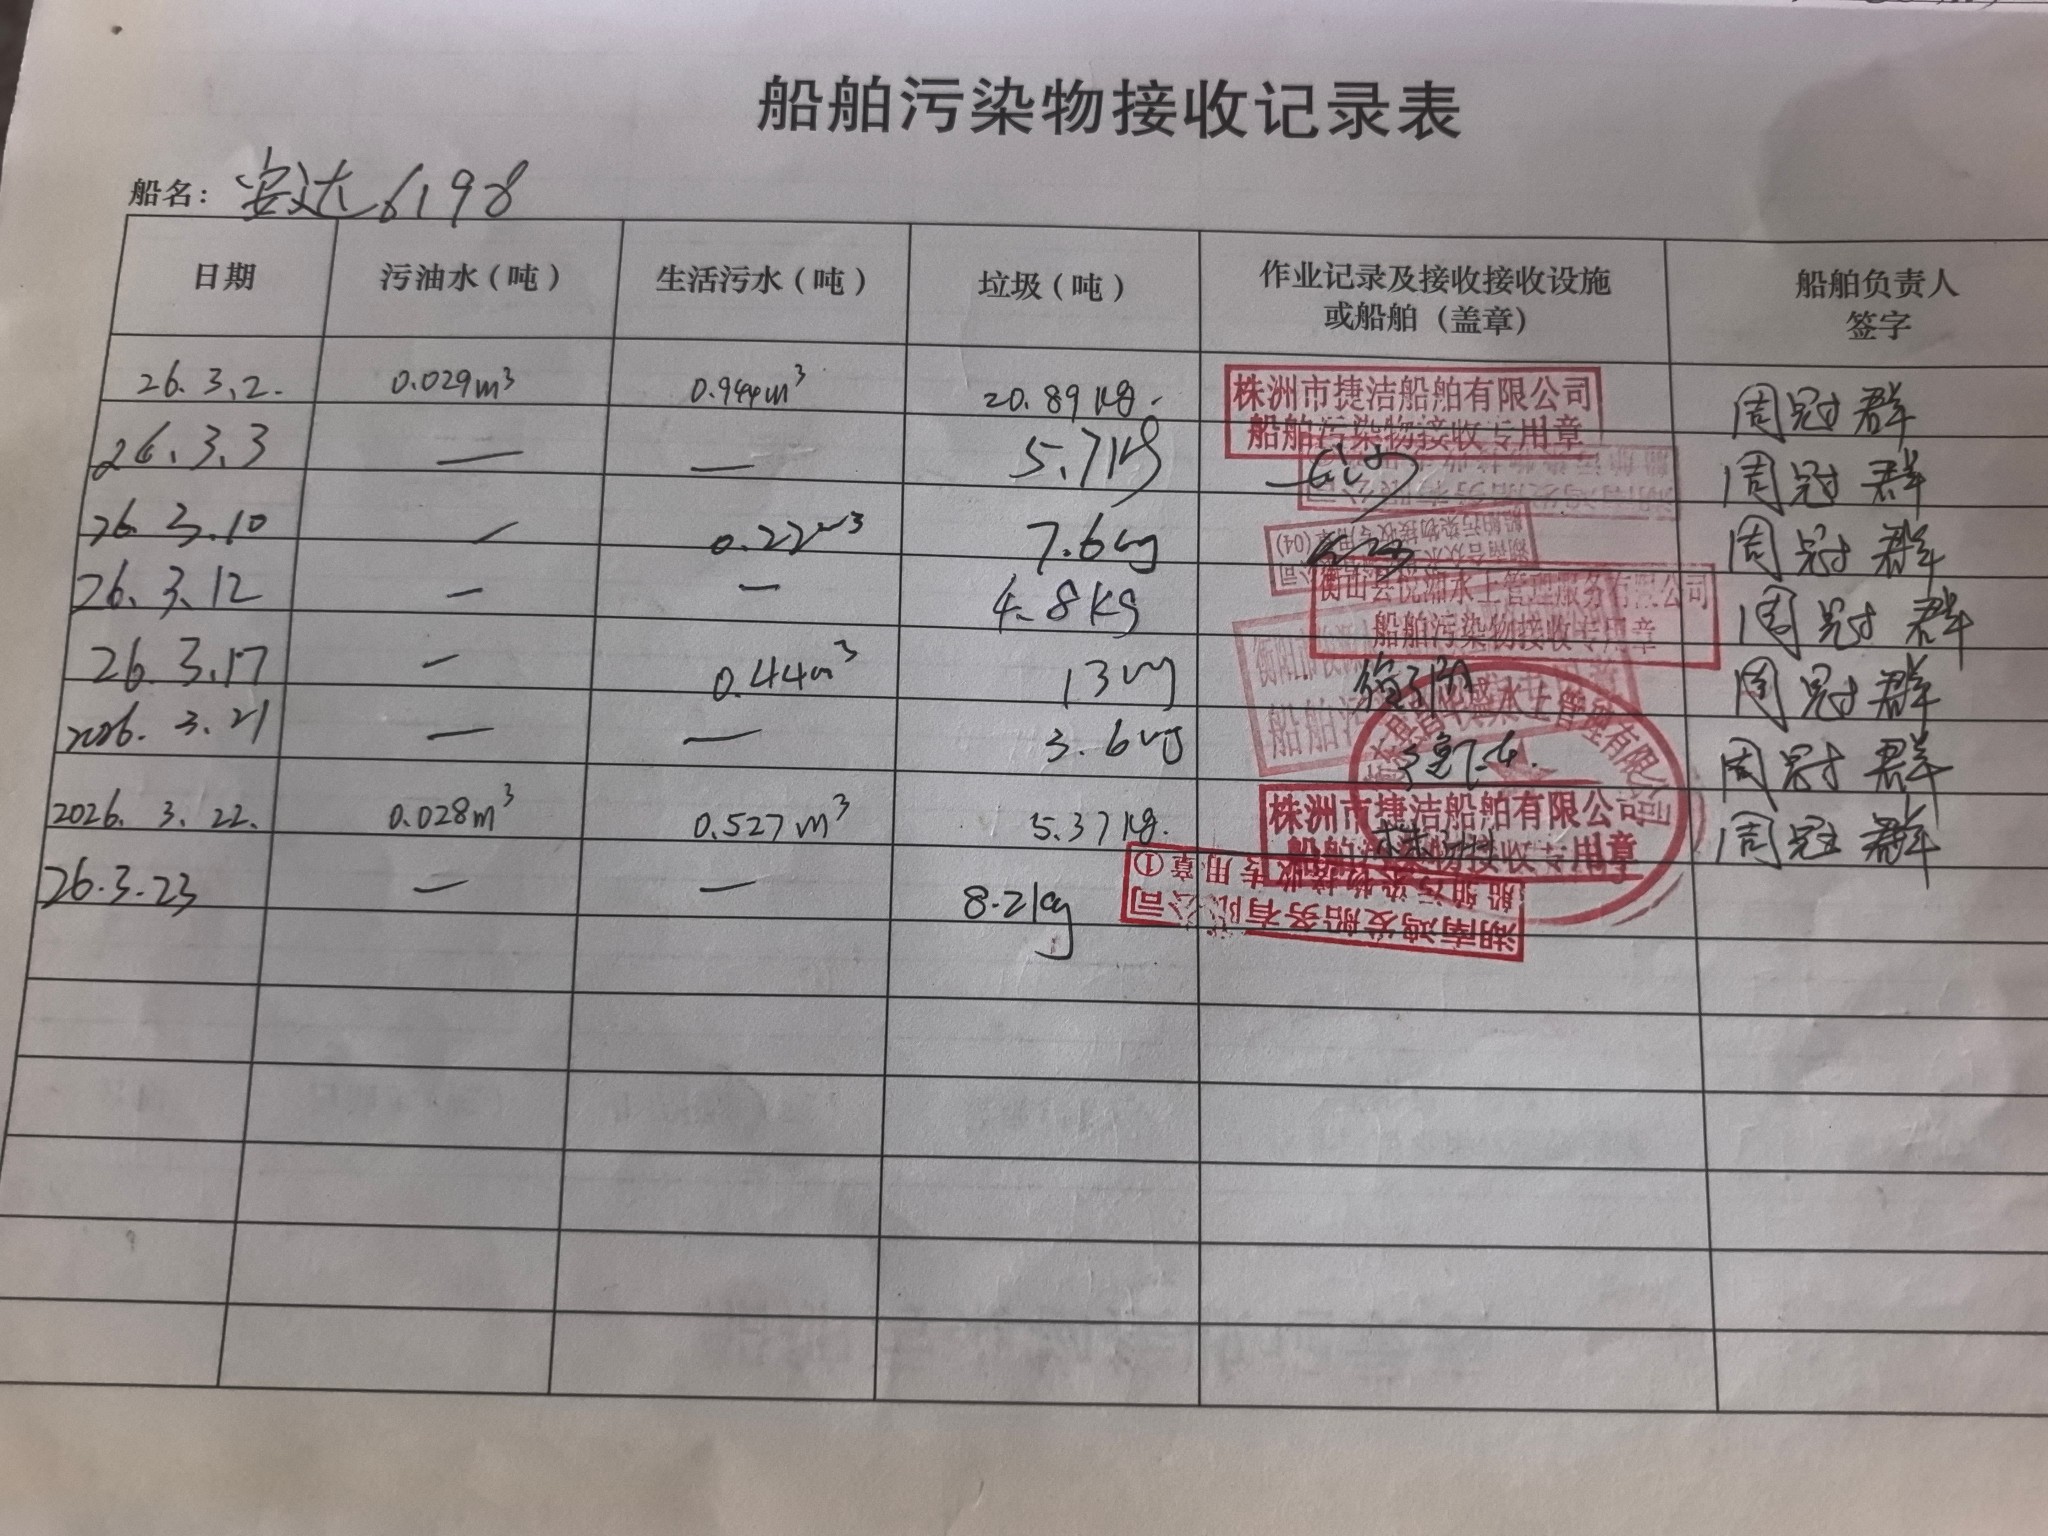 船舶污染物接收记录表
船名：安达6198
日期 污油水（吨） 生活污水（吨） 垃圾（吨） 作业记录及接收接收设施或船舶（盖章） 船舶负责人签字
26.3.2. 0.029m³ 0.944m³ 20.89kg. 株洲市捷洁船舶有限公司 船舶污染物接收专用章 周冠群
26.3.3 — — 5.7kg 周冠群
26.3.10 — 0.22m³ 7.6kg 船舶污染物接收专用章(04) 周冠群
26.3.12 — — 4.8kg 衡山县悦湘水上管理服务有限公司 船舶污染物接收专用章 周冠群
26.3.17 — 0.44m³ 13kg 周冠群
2026.3.21 — — 3.6kg 水上管理有限公司 周冠群
2026.3.22. 0.028m³ 0.527m³ 5.37kg. 株洲市捷洁船舶有限公司 船舶污染物接收专用章 周冠群
26.3.23 — — 8.2kg 湖南鸿发船务有限公司 船舶污染物接收专用章①